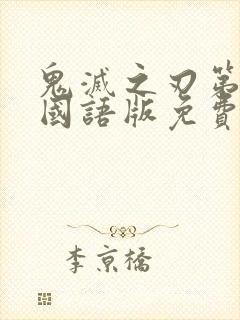 鬼滅之刃第
國語版免費
李京橋